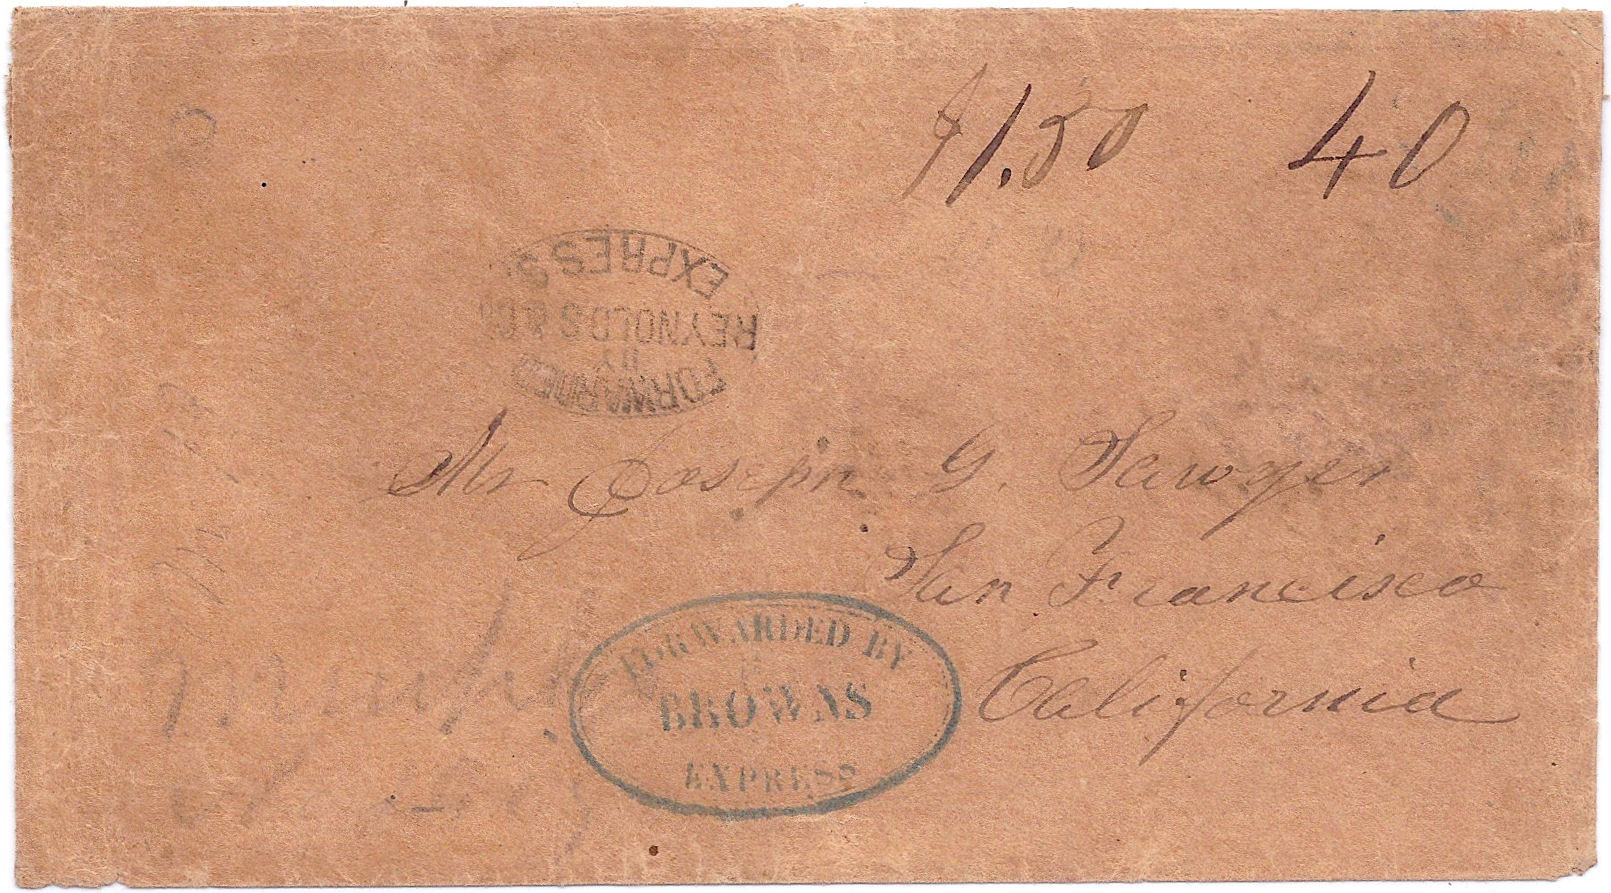 $1.50 40
FORWARDED
BY
REYNOLDS & Co
EXPRESS
Mr Joseph G. Sawyer
San Francisco
California
FORWARDED BY
BROWNS
EXPRESS